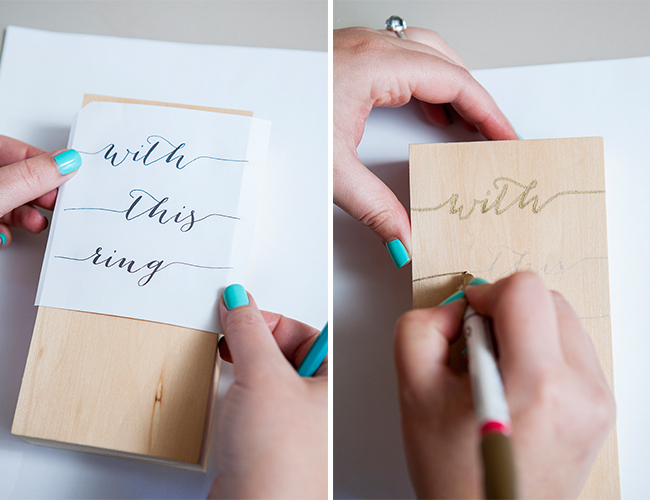 with
this
ring
with
this